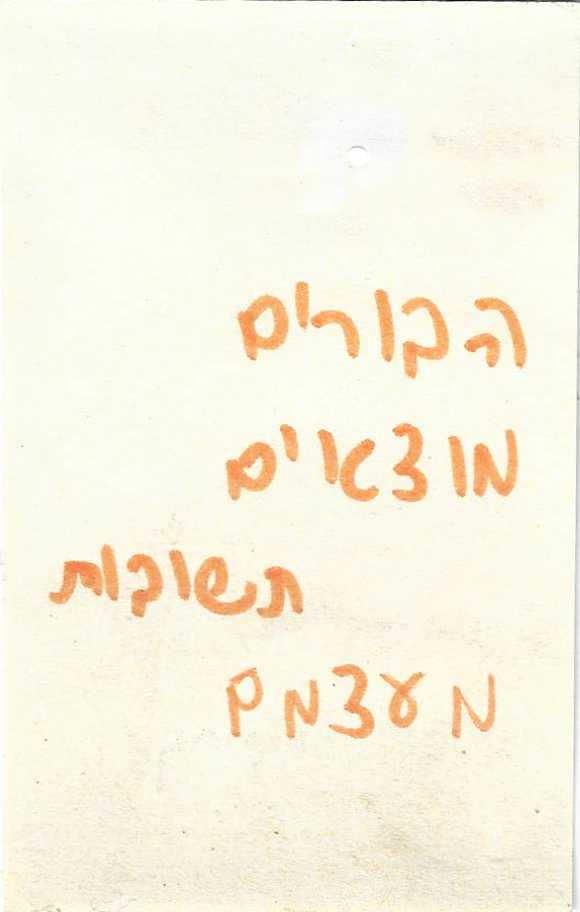 הבורים
מוצאים
תשובות
מעצמם